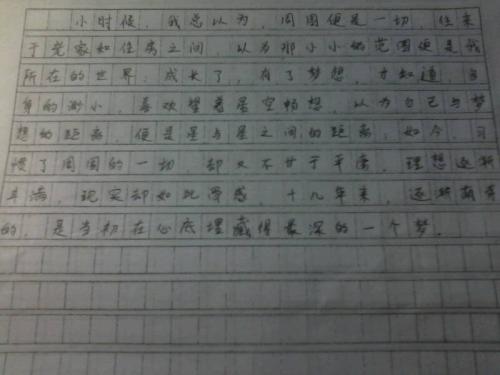 小时候，我总以为，周围便是一切，往来
于老家和住房之间，以为那小小的范围便是我
所在的世界；成长了，有了梦想，才知道，自
身的渺小，喜欢望着星空畅想，以为自己与梦
想的距离，便是星与星之间的距离；如今，习
惯了周围的一切，却又不甘于平庸，理想逐渐
丰满，现实却如此骨感，十几年来，逐渐
的，是当初在心底埋藏得最深的一个梦.